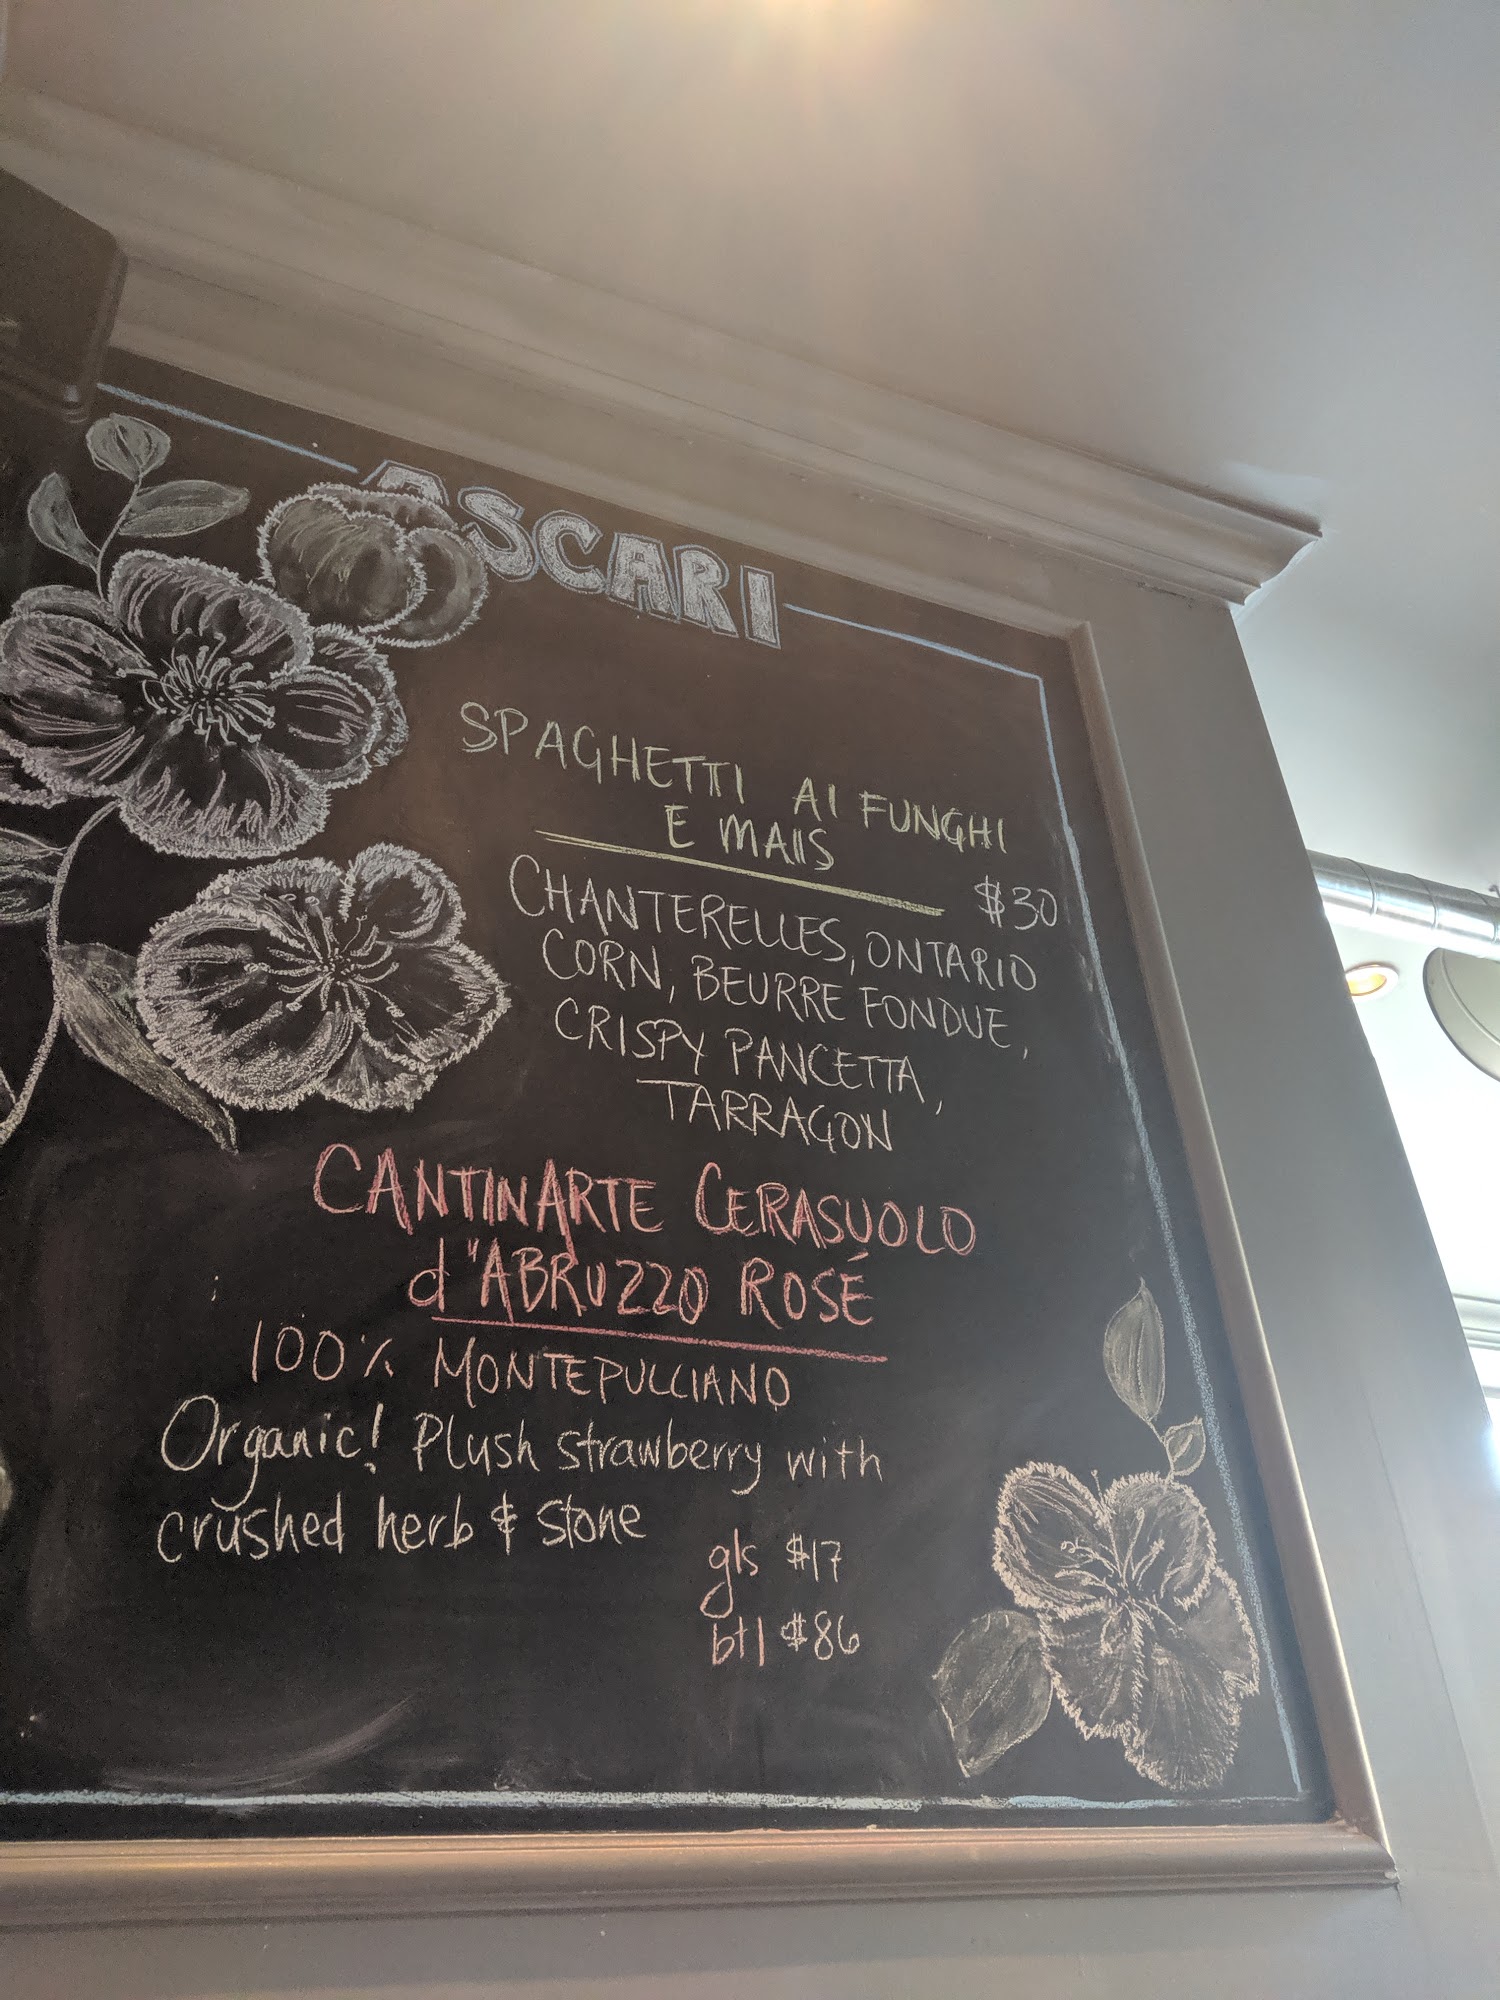 ASCARI
SPAGHETTI AI FUNGHI
E MAIS
$30
CHANTERELLES, ONTARIO
CORN, BEURRE FONDUE,
CRISPY PANCETTA,
TARRAGON
CANTINARTE CERASUOLO
d'ABRUZZO ROSÉ
100% MONTEPULCIANO
Organic! Plush strawberry with
crushed herb & stone
gls $17
btl $86